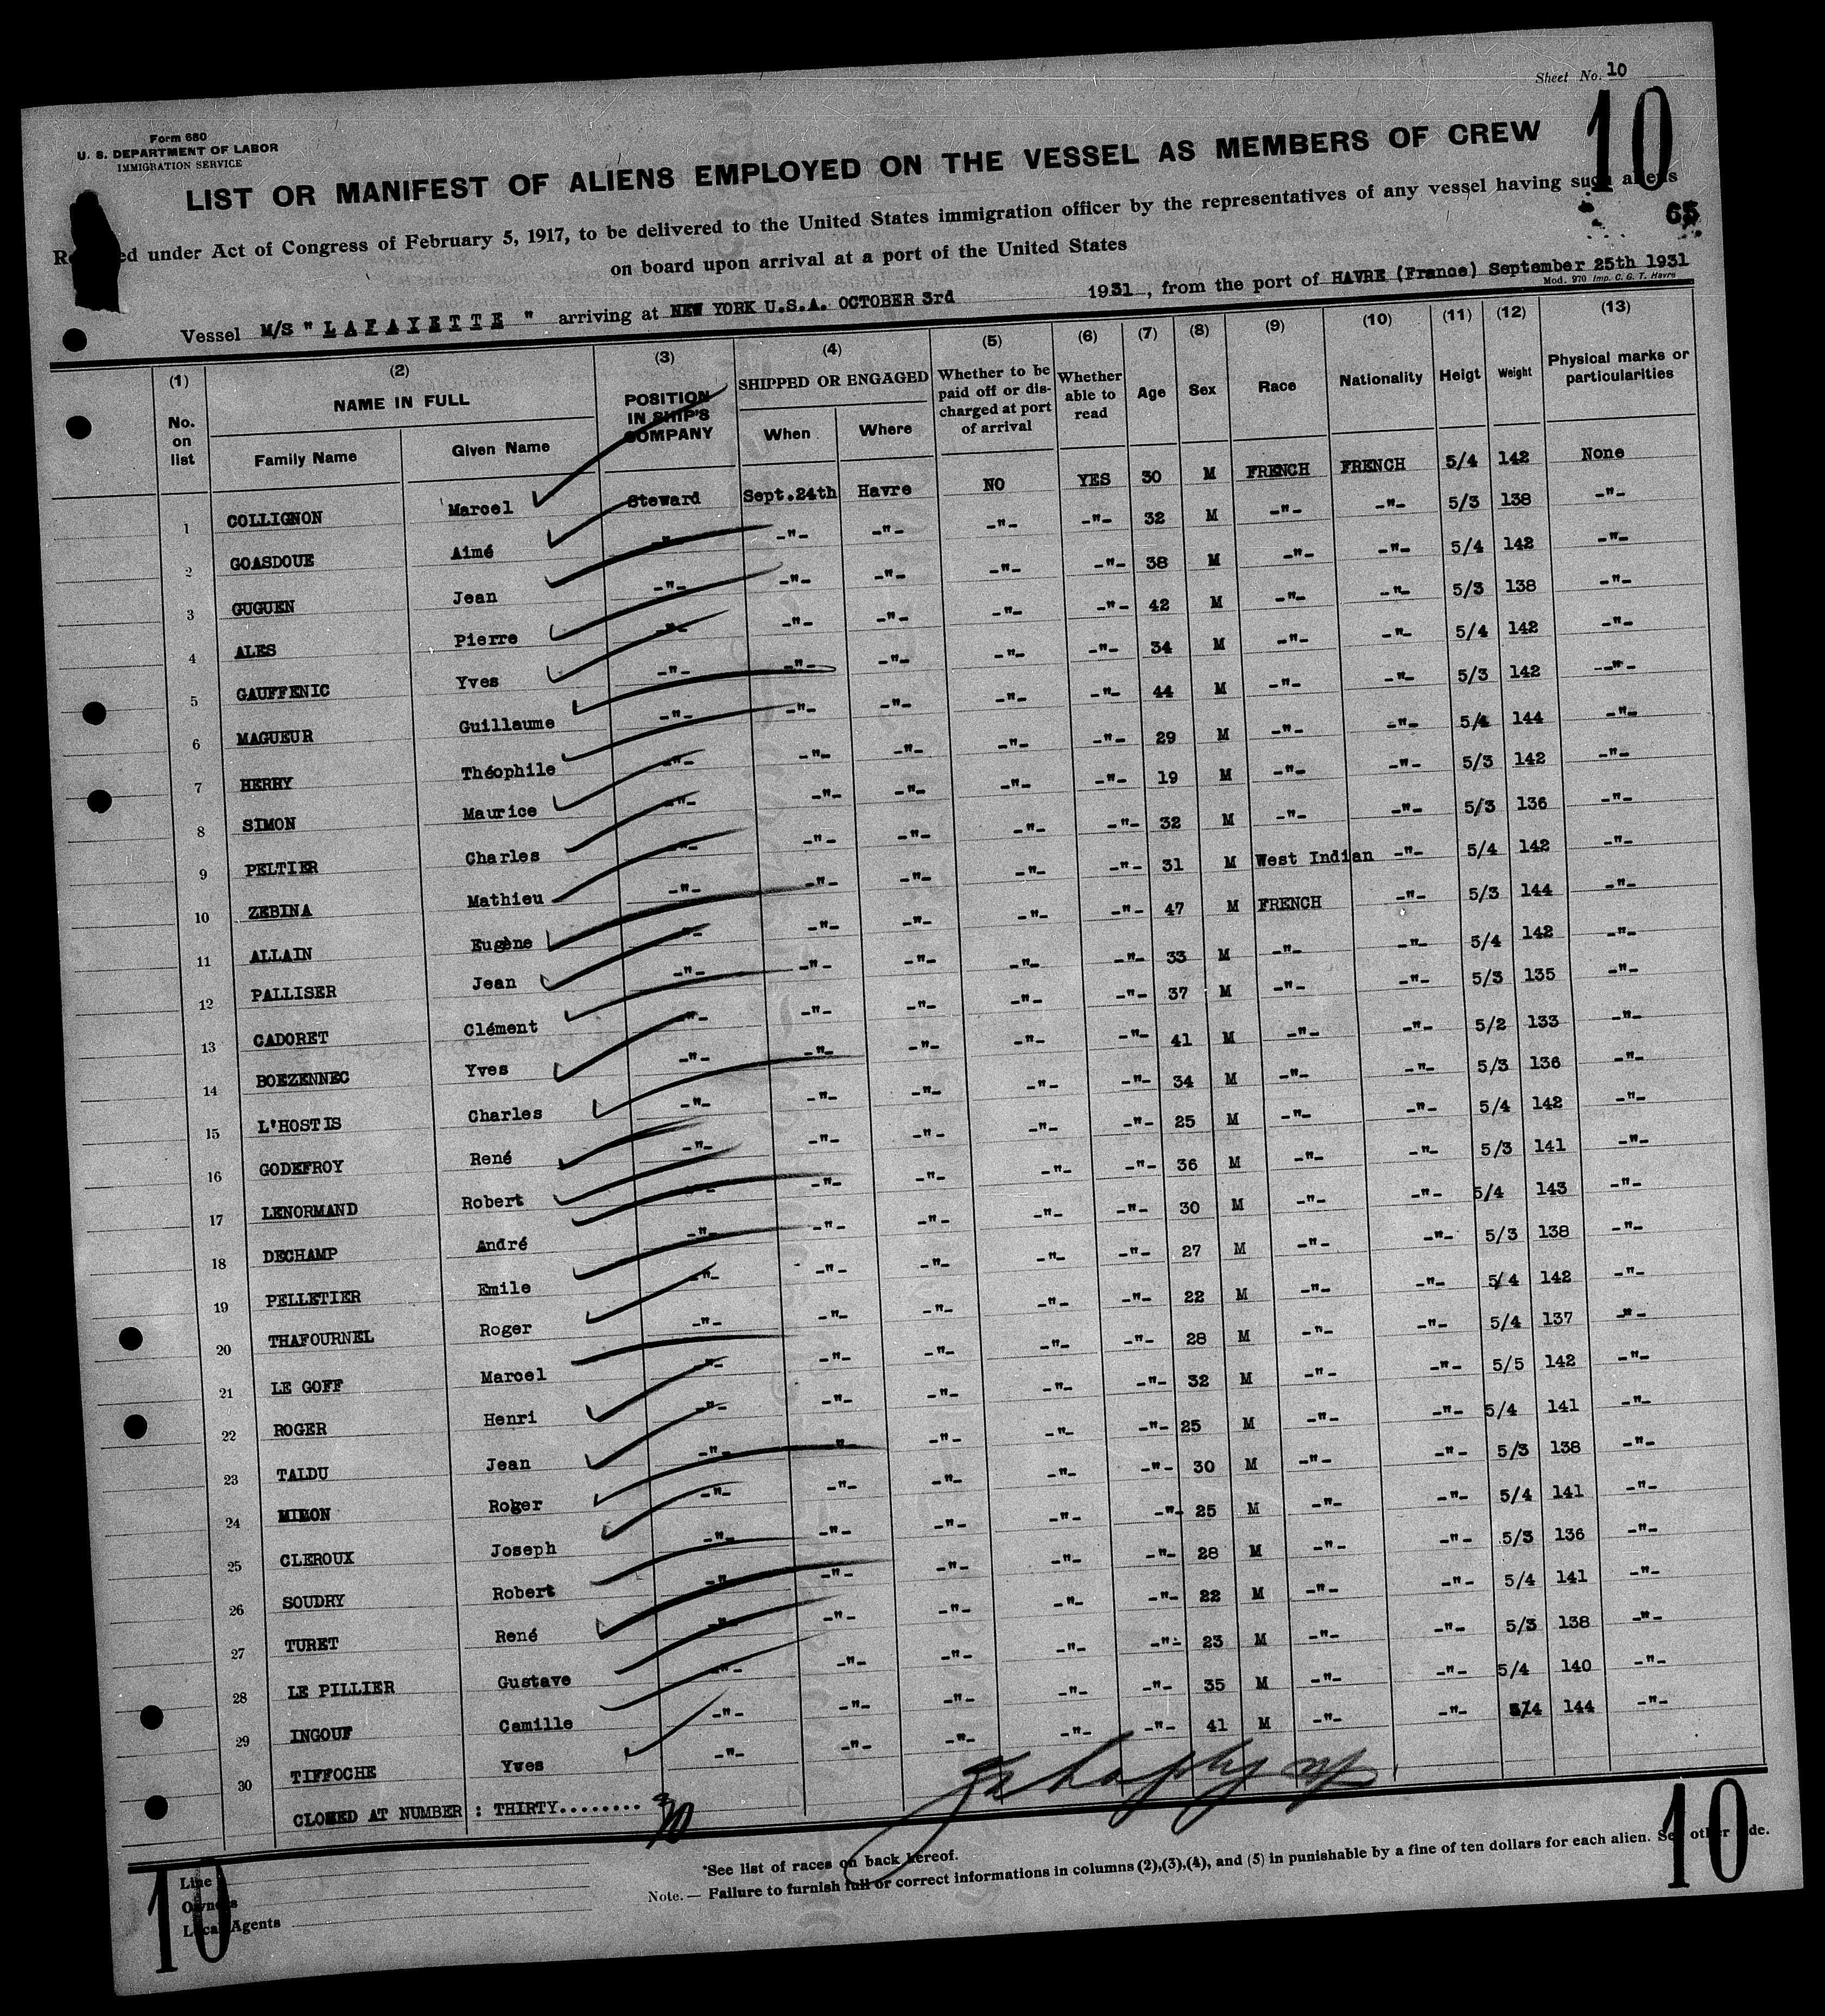 Sheet No. 10
10
Form 680
U. S. DEPARTMENT OF LABOR
IMMIGRATION SERVICE
LIST OR MANIFEST OF ALIENS EMPLOYED ON THE VESSEL AS MEMBERS OF CREW
65
under Act of Congress of February 5, 1917, to be delivered to the United States immigration officer by the representatives of any vessel having such aliens
on board upon arrival at a port of the United States
Vessel M/S " LAFAYETTE " arriving at NEW YORK U.S.A. OCTOBER 3rd 1931, from the port of HAVRE (France) September 25th 1931
Mod. 970 Imp. C. G. T. Havre
(1) (2) (3) (4) (5) (6) (7) (8) (9) (10) (11) (12) (13)
No. on list NAME IN FULL Family Name Given Name POSITION IN SHIP'S COMPANY SHIPPED OR ENGAGED When Where Whether to be paid off or discharged at port of arrival Whether able to read Age Sex Race Nationality Heigt Weight Physical marks or particularities
1 COLLIGNON Marcel Steward Sept.24th Havre NO YES 30 M FRENCH FRENCH 5/4 142 None
2 GOASDOUE Aimé -"- -"- -"- -"- -"- 32 M -"- -"- 5/3 138 -"-
3 GUGUEN Jean -"- -"- -"- -"- -"- 38 M -"- -"- 5/4 142 -"-
4 ALES Pierre -"- -"- -"- -"- -"- 42 M -"- -"- 5/3 138 -"-
5 GAUFFENIC Yves -"- -"- -"- -"- -"- 34 M -"- -"- 5/4 142 -"-
6 MAGUEUR Guillaume -"- -"- -"- -"- -"- 44 M -"- -"- 5/3 142 -"-
7 HERRY Théophile -"- -"- -"- -"- -"- 29 M -"- -"- 5/4 144 -"-
8 SIMON Maurice -"- -"- -"- -"- -"- 19 M -"- -"- 5/3 142 -"-
9 PELTIER Charles -"- -"- -"- -"- -"- 32 M -"- -"- 5/3 136 -"-
10 ZEBINA Mathieu -"- -"- -"- -"- -"- 31 M West Indian -"- 5/4 142 -"-
11 ALLAIN Eugène -"- -"- -"- -"- -"- 47 M FRENCH -"- 5/3 144 -"-
12 PALLISER Jean -"- -"- -"- -"- -"- 33 M -"- -"- 5/4 142 -"-
13 CADORET Clément -"- -"- -"- -"- -"- 37 M -"- -"- 5/3 135 -"-
14 BOEZENNEC Yves -"- -"- -"- -"- -"- 41 M -"- -"- 5/2 133 -"-
15 L'HOSTIS Charles -"- -"- -"- -"- -"- 34 M -"- -"- 5/3 136 -"-
16 GODEFROY René -"- -"- -"- -"- -"- 25 M -"- -"- 5/4 142 -"-
17 LENORMAND Robert -"- -"- -"- -"- -"- 36 M -"- -"- 5/3 141 -"-
18 DECHAMP André -"- -"- -"- -"- -"- 30 M -"- -"- 5/4 143 -"-
19 PELLETIER Emile -"- -"- -"- -"- -"- 27 M -"- -"- 5/3 138 -"-
20 THAFOURNEL Roger -"- -"- -"- -"- -"- 22 M -"- -"- 5/4 142 -"-
21 LE GOFF Marcel -"- -"- -"- -"- -"- 28 M -"- -"- 5/4 137 -"-
22 ROGER Henri -"- -"- -"- -"- -"- 32 M -"- -"- 5/5 142 -"-
23 TALDU Jean -"- -"- -"- -"- -"- 25 M -"- -"- 5/4 141 -"-
24 MIRON Roger -"- -"- -"- -"- -"- 30 M -"- -"- 5/3 138 -"-
25 CLEROUX Joseph -"- -"- -"- -"- -"- 25 M -"- -"- 5/4 141 -"-
26 SOUDRY Robert -"- -"- -"- -"- -"- 28 M -"- -"- 5/3 136 -"-
27 TURET René -"- -"- -"- -"- -"- 22 M -"- -"- 5/4 141 -"-
28 LE PILLIER Gustave -"- -"- -"- -"- -"- 23 M -"- -"- 5/3 138 -"-
29 INGOUF Camille -"- -"- -"- -"- -"- 35 M -"- -"- 5/4 140 -"-
30 TIFFOCHE Yves -"- -"- -"- -"- -"- 41 M -"- -"- 5/4 144 -"-
CLOSED AT NUMBER : THIRTY........ 30
*See list of races on back hereof.
Note. — Failure to furnish full or correct informations in columns (2),(3),(4), and (5) in punishable by a fine of ten dollars for each alien. See other side.
Line
Owners
Local Agents
10
10